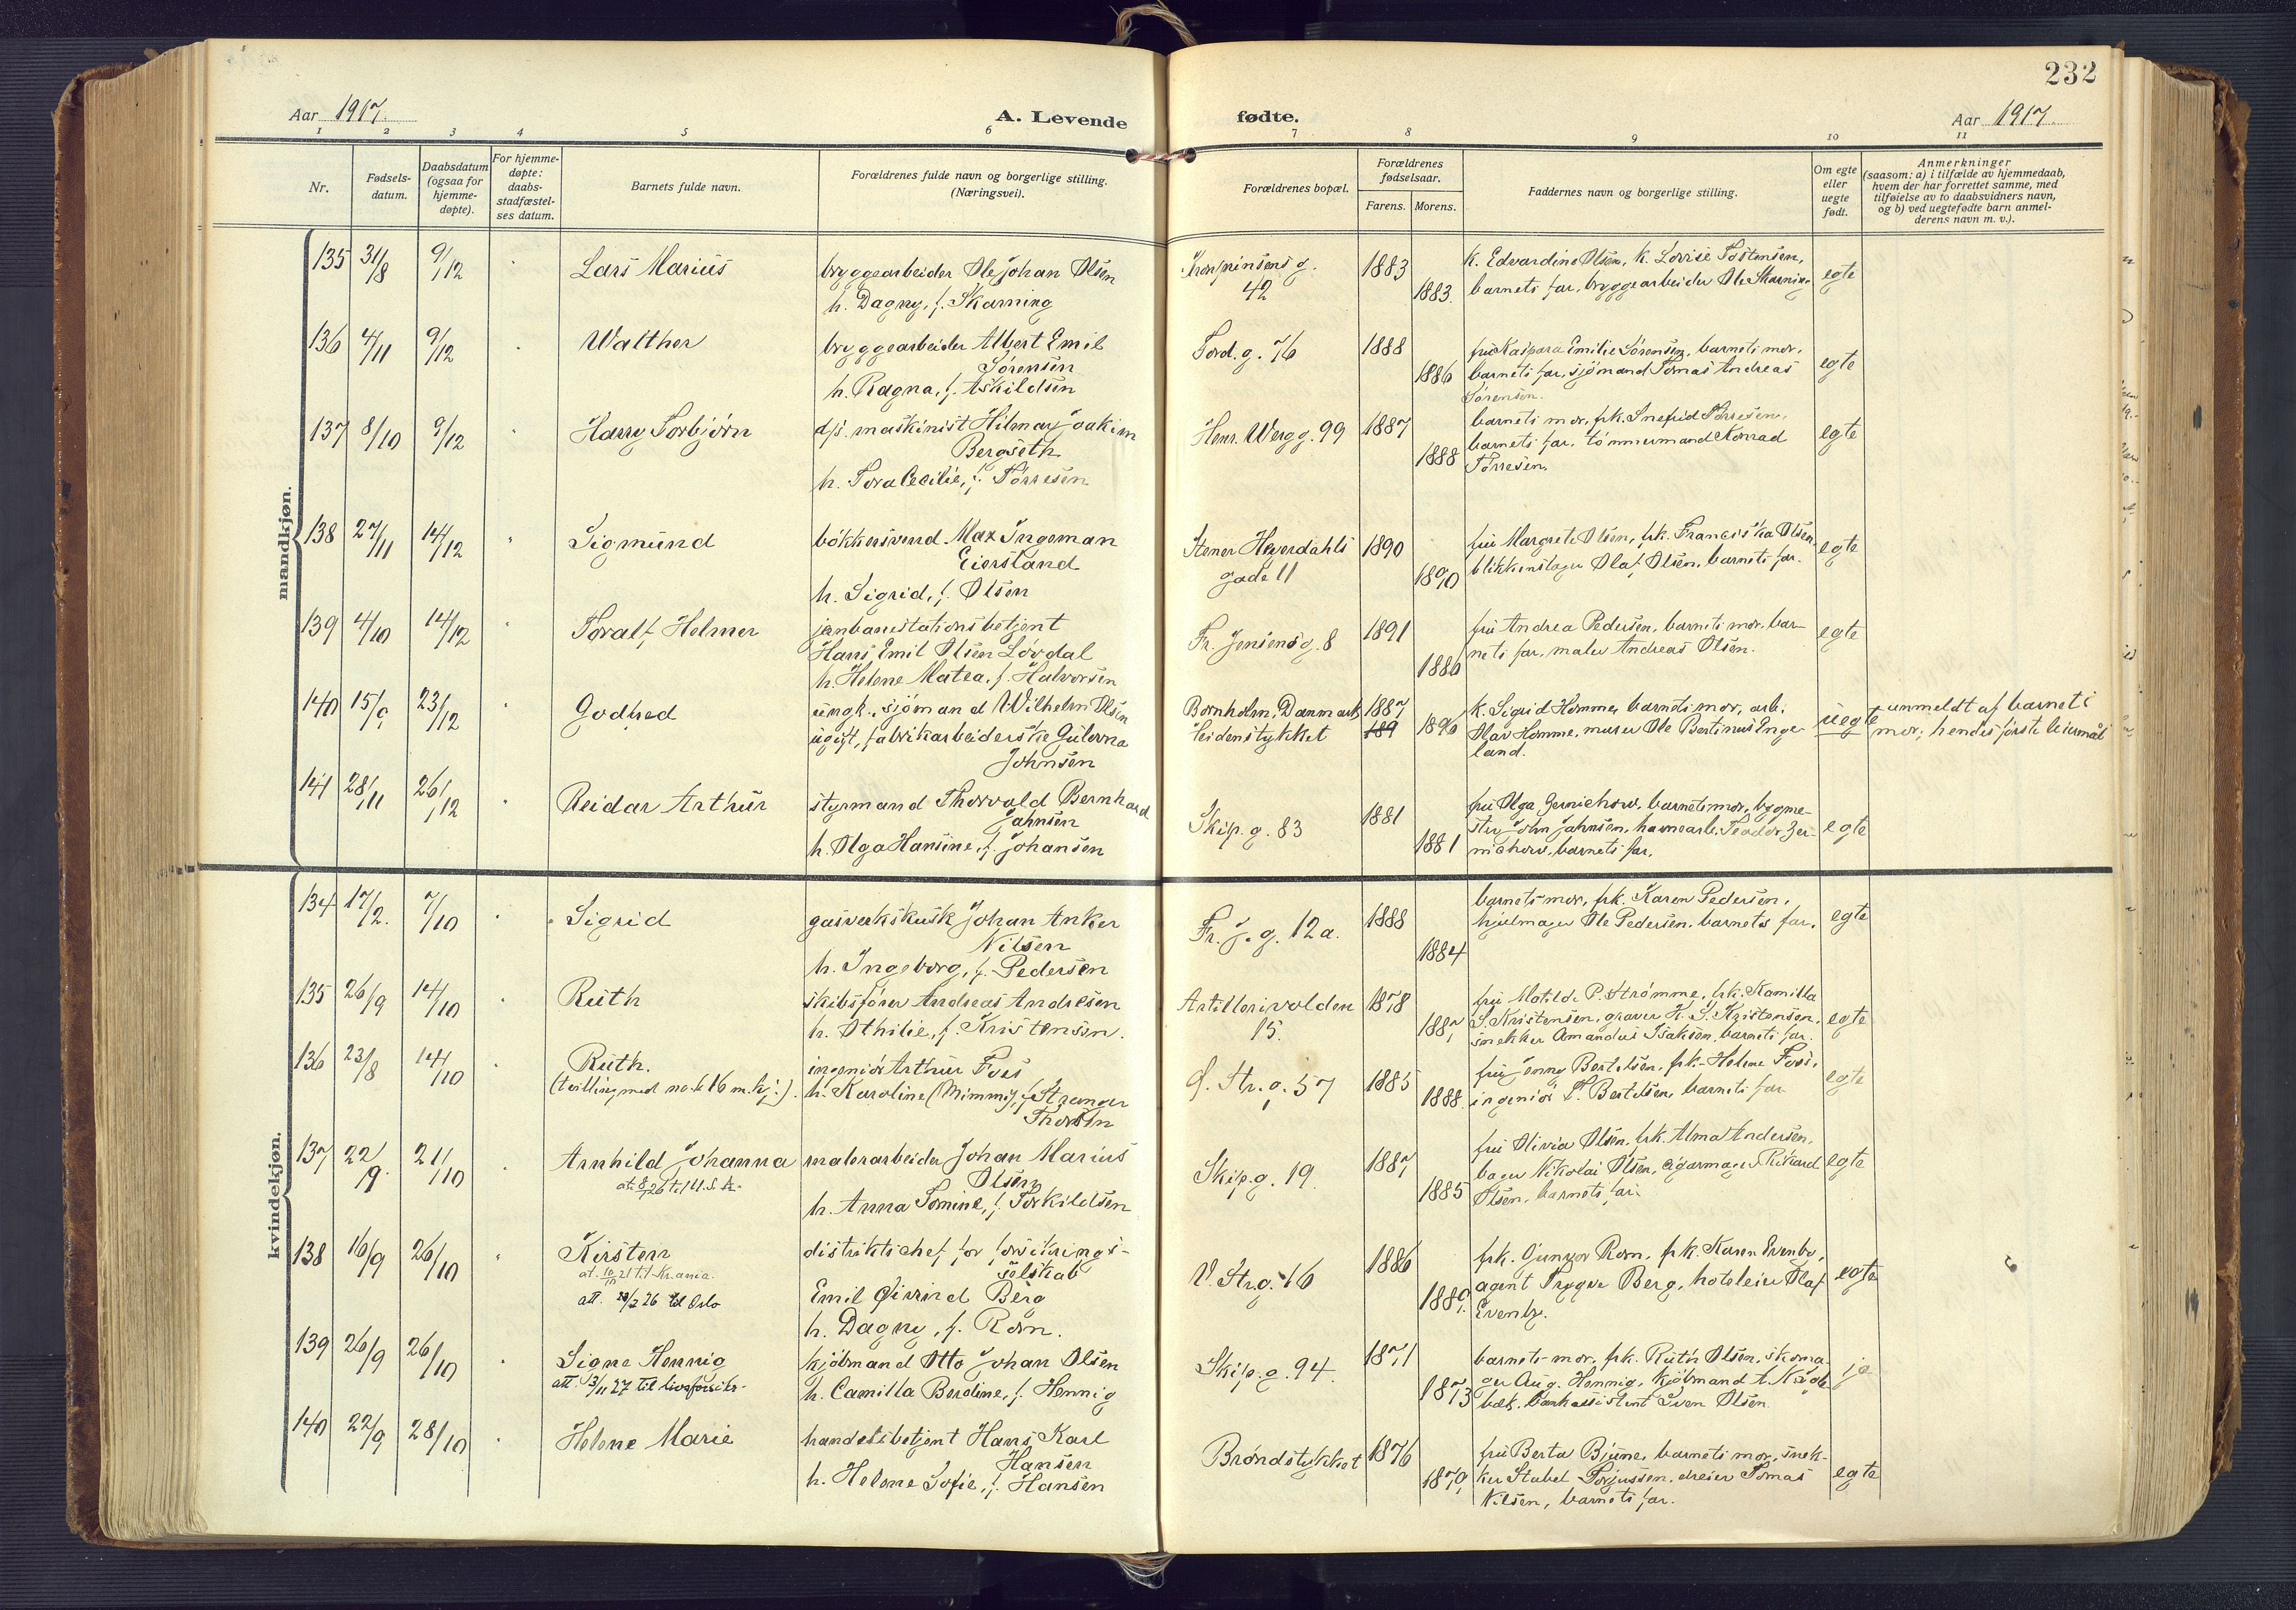 232
Aar 1917.
A. Levende
fødte.
Aar 1917.
1 2 3 4 5 6 7 8 9 10 11
Nr.
Fødsels-
datum.
Daabsdatum
(ogsaa for
hjemme-
døpte).
For hjemme-
døpte:
daabs-
stadfæstel-
ses datum.
Barnets fulde navn.
Forældrenes fulde navn og borgerlige stilling.
(Næringsvei).
Forældrenes bopæl.
Forældrenes
fødselsaar.
Farens. Morens.
Faddernes navn og borgerlige stilling.
Om egte
eller
uegte
født.
Anmerkninger
(saasom: a) i tilfælde av hjemmedaab,
hvem der har forrettet samme, med
tilføielse av to daabsvidners navn,
og b) ved uegtefødte barn anmel-
derens navn m. v.).
mandkjøn.
135 31/8 9/12 Lars Marius
bryggearbeider Ole Johan Olsen
h. Dagny, f. Skarning
Kronprinsens g.
42
1883
1883.
k. Edvardine Olsen, k. Lovise Tostensen,
barnets far, bryggearbeider Ole Skarning
egte
136 4/11 9/12 Walther
bryggearbeider Albert Emil
Sørensen
h. Ragna, f. Askildsen
Tord. g. 76
1888
1886
fru Kaspara Emilie Sørensen, barnets mor,
barnets far, sjømand Tomas Andreas
Sørensen.
egte
137 8/10 9/12 Harry Torbjørn
d/s. maskinist Hilmar Joakim
Bergseth
h. Tora Cecilie, f. Tørresen
Henr. Werg g. 99
1887
1888
barnets mor, frk. Snefrid Tørresen,
barnets far, tømmermand Konrad
Tørresen.
egte
138 27/11 14/12 Sigmund
bøkkersvend Max Ingeman
Eiersland
h. Sigrid, f. Olsen
Stener Heyerdahls
gade 11
1890
1890
fru Margrete Olsen, frk. Franciska Olsen,
blikkenslager Olaf Olsen, barnets far.
egte
139 4/10 14/12 Toralf Helmer
jernbanestationsbetjent
Hans Emil Olsen Løvdal
h. Helene Matea, f. Halvorsen
Fr. Jensensg. 8
1891
1886
fru Andrea Pedersen, barnets mor, bar-
nets far, maler Andreas Olsen.
egte
140 15/9 23/12 Godtred
ungk., sjømand Wilhelm Olsen
ugift, fabrikarbeiderske Gulovna
Johnsen
Bornholm, Danmark
Heidenstykket
1887
189
1896
k. Sigrid Homme, barnets mor, arb.
Olav Homme, murer Ole Bertinus Enge-
land.
uegte
anmeldt af barnets
mor; hendes første leiermål
141 28/11 26/12 Reidar Arthur
styrmand Thorvald Bernhard
Jahnsen
h. Olga Hansine, f. Johansen
Skip. g. 83
1881
1881
fru Olga Germichow, barnets mor, bygme-
ster John Jahnsen, havnearb. Teodor Ger-
michow, barnets far.
egte
kvindekjøn.
134 17/2. 7/10 Sigrid
gasverkskusk Johan Anker
Nilsen
h. Ingeborg, f. Pedersen
Fr. J. g. 12a.
1888
1884
barnets mor, frk. Karen Pedersen,
hjulmager Ole Pedersen, barnets far.
egte
135 26/9 14/10 Ruth
skibsfører Andreas Andresen
h. Othilie, f. Kristensen.
Artillerivolden
15.
1878
1887
fru Matilde P. Strømme, frk. Kamilla
S. Kristensen, graver K. S. Kristensen,
snekker Amandus Isaksen, barnets far.
egte
136 23/8 14/10 Ruth.
(tvilling med no. 116 m. kj.).
ingeniør Arthur Foss
h. Karoline (Mimmi), f. Stranger
Thorsen
Ø. Str. g. 57
1885
1888.
fru Jenny Bertelsen, frk. Helene Foss,
ingeniør T. Bertelsen, barnets far
egte
137 22/9. 21/10 Arnhild Johanna
malerarbeider Johan Marius
Olsen
h. Anna Tomine, f. Torkildsen
Skip. g. 19.
1887
1885
fru Olivia Olsen, frk. Alma Andersen,
bager Nikolai Olsen, cigarmager Rikard
Olsen, barnets far.
egte
138 16/9 26/10 Kirsten
at. 10/10 21 til Kr.ania.
att. 23/2 26 til Oslo
distriktschef for forsikrings-
selskab
Emil Øivind Berg
h. Dagny, f. Rom.
V. Str. g. 16
1886
1889.
frk. Gunvor Rom, frk. Karen Evenby,
agent Trygve Berg, hoteleier Olaf
Evenby.
egte
139 26/9 26/10 Signe Hennig
att. 3/11 27 til livsforsikr.
kjøbmand Otto Johan Olsen
h. Camilla Berdine, f. Hennig
Skip. g. 94.
1871
1873
barnets mor, frk. Ruth Olsen, skoma-
ger Aug. Hennig, kjøbmand
bankassistent Sven Olsen.
ja
140 22/9 28/10 Helene Marie
handelsbetjent Hans Karl
Hansen
h. Helene Sofie, f. Hansen
Brøndstykket
1876
1879,
fru Berta Bjune, barnets mor, snek-
ker Stubel Torjussen, dreier Tomas
Nilsen, barnets far.
egte